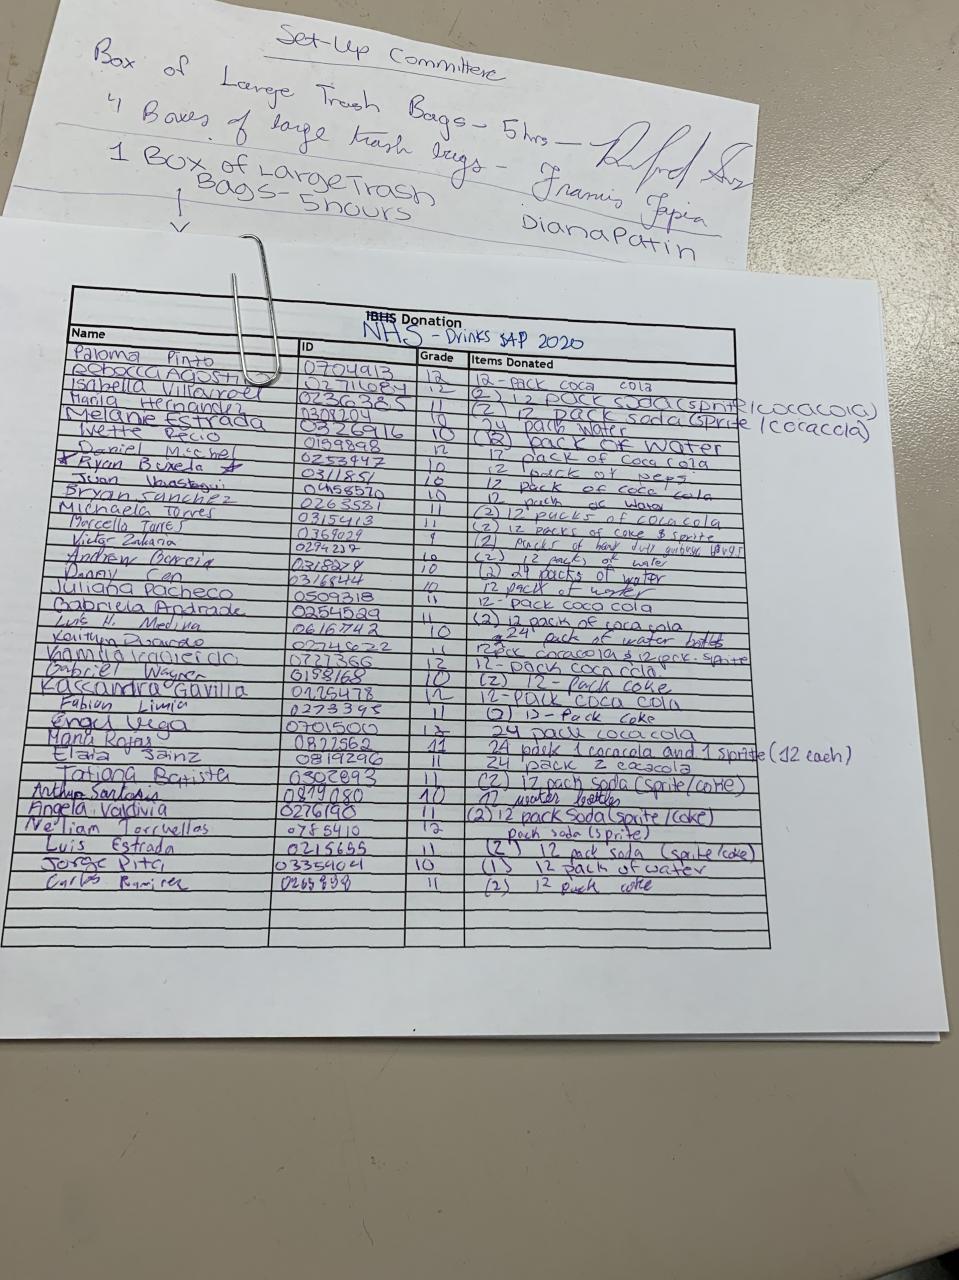 Set-Up Committee
Box of Large Trash Bags - 5 hrs -
4 Boxes of large trash bags - Francis Tapia
1 Box of Large Trash
Bags - 5 hours Diana Patin
IBHS Donation
NHS - Drinks SAP 2020
Name ID Grade Items Donated
Paloma Pinto 0704913 12 12-pack coca cola
Rebecca Agosti 12 (2) 12 pack soda (sprite/cocacola)
Isabella Villarroel 0236385 11 (2) 12 pack soda (sprite/cocacola)
Maria Hernandez 0308204 10 24 pack water
Melanie Estrada 0326916 10 (12) pack of water
Ivette Recio 0159898 12 12 pack of coca cola
Daniel Michel 0253447 10 12 pack of pepsi
Ryan 0311851 10 12 pack of coca cola
Juan 0458570 10 12 pack of water
Bryan Sanchez 0263581 11 (2) 12 packs of cocacola
Michaela Torres 0315413 11 (2) 12 packs of coke & sprite
Marcello Torres 0369029 9 (2) packs of
Victor Zakaria 10 (2) 12 packs of water
Andrew Garcia 0318279 10 (2) 24 packs of water
Danny Cen 0316844 10 12 pack of water
Juliana Pacheco 0509318 11 12-pack coco cola
Gabriela Andrade 0254529 11 (2) 12 pack of coca cola
Luis H. Medina 0616742 10 24 pack of water
0274622 11 12pck cocacola & 12 pck. sprite
Kamila Izquierdo 0727366 12 12-pack coca cola
Gabriel Wagner 0158168 10 (2) 12-Pack coke
Kassandra Gavilla 0125478 12 12-Pack coca cola
Fabian Limia 0273395 11 (2) 12-Pack coke
Engel Vega 0701500 12 24 pack cocacola
Maria Rojas 0822562 11 24 pack 1 cocacola and 1 sprite (12 each)
Elaia Sainz 0819296 11 24 pack 2 cocacola
Tatiana Batista 0302893 11 (2) 12 pack soda (sprite/coke)
Arthur 10 12 water bottles
Angela Valdivia 0276190 11 (2) 12 pack soda (sprite/coke)
0785410 12 pack soda (sprite)
Luis Estrada 0215655 11 (2) 12 pack soda (sprite/coke)
Jorge Pita 0335404 10 (1) 12 pack of water
Carlos Ramirez 11 (2) 12 pack coke